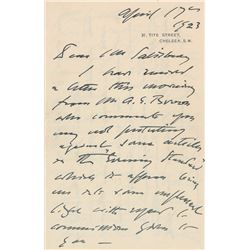 April 17th
1923
31, TITE STREET,
CHELSEA, S.W.
Dear Mr Salisbury
I have received
a letter this morning
from Mr A. G. Brown
who comments upon
my not protesting
against some articles
in the "Evening Standard"
which it appears being
me in to some unpleasant
light with regard to
commissions given to
you —